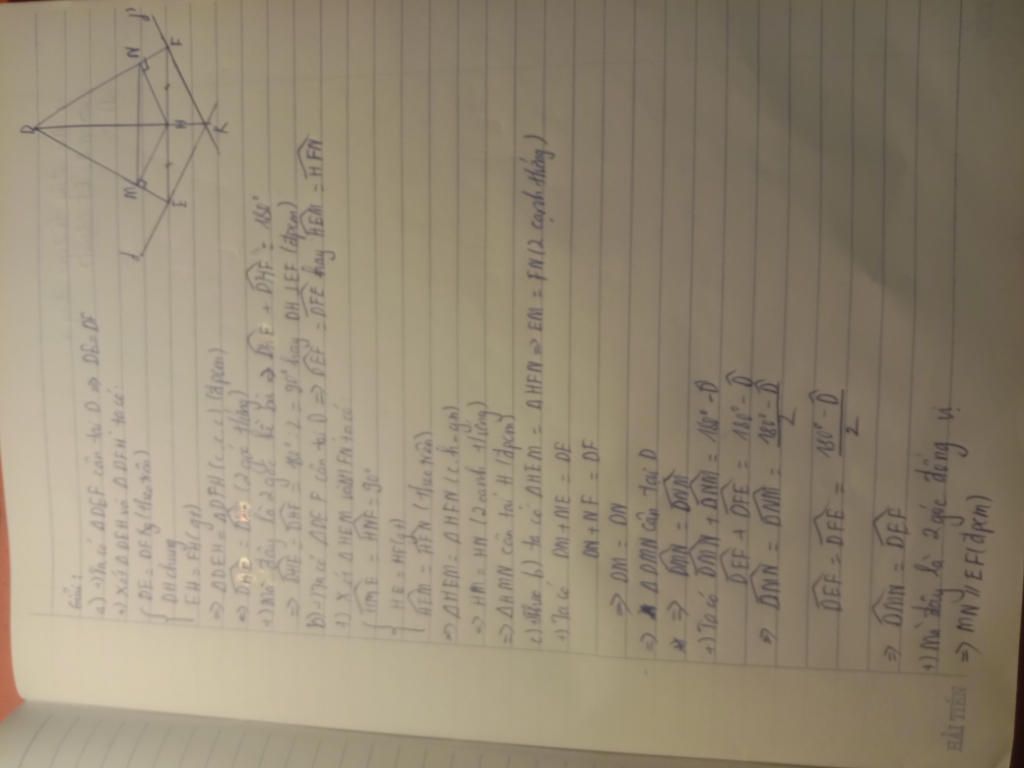 D
M
N
E
H
F
K
Giải:
a) +) Ta có ΔDEF cân tại D => DE = DF
+) Xét ΔDEH và ΔDFH ta có
DE = DF (theo trên)
DH chung
EH = FH (gt)
=> ΔDEH = ΔDFH (c.c.c) (đpcm)
=> (2 góc t/ứng)
+) Mà đây là 2 góc kề bù => + = 180°
=> = = 180° : 2 = 90° hay DH ⊥ EF (đpcm)
b) +) Ta có ΔDEF cân tại D => DEF = DFE hay HEM = HFN
+) Xét ΔHEM và ΔHFN ta có
HME = HNF = 90°
HE = HF (gt)
HEM = HFN (theo trên)
=> ΔHEM = ΔHFN (c.h-g.n)
=> HM = HN (2 cạnh t/ứng)
=> ΔHMN cân tại H (đpcm)
c) theo b) ta có ΔHEM = ΔHFN => EM = FN (2 cạnh t/ứng)
+) Ta có DM + ME = DE
DN + NF = DF
=> DM = DN
=> ΔDMN cân tại D
=> DMN = DNM
+) Ta có DMN + DNM = 180° - D
DEF + DFE = 180° - D
=> DMN = DNM = 180° - D / 2
DEF = DFE = 180° - D / 2
=> DMN = DEF
+) Mà đây là 2 góc đồng vị
=> MN // EF (đpcm)
HẢI TIẾN